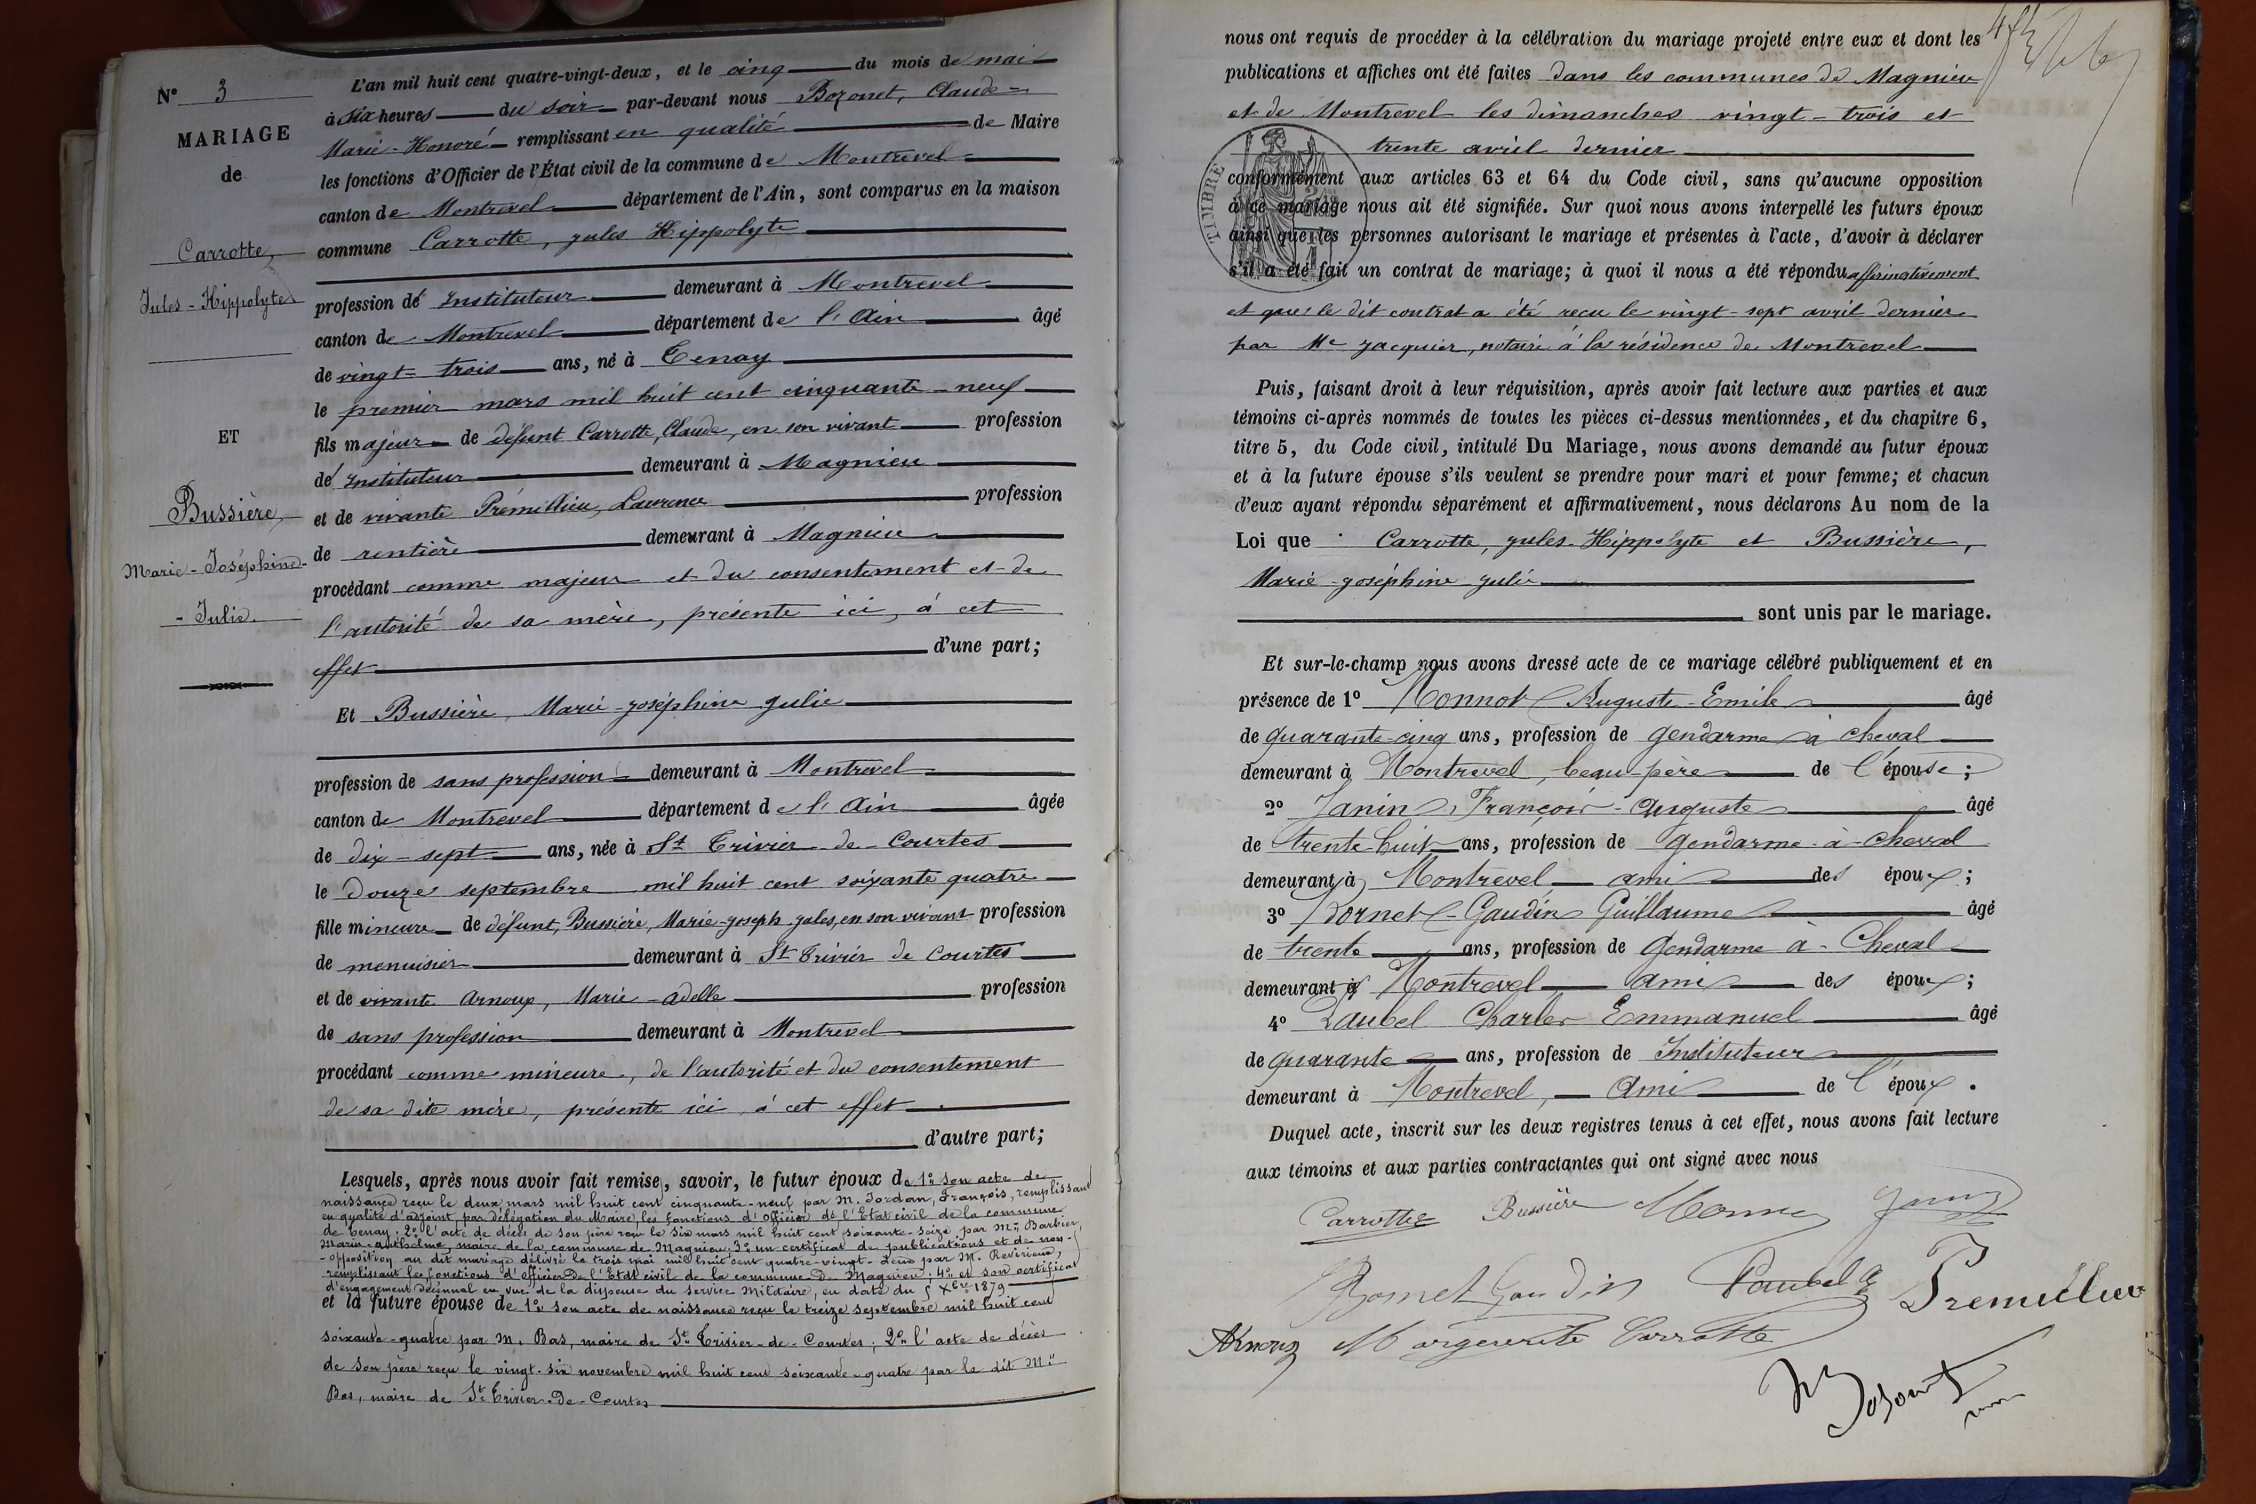 N° 3
MARIAGE
de
Carrotte,
Jules-Hippolyte
ET
Bussière,
Marie-Joséphine-
-Julie.
L'an mil huit cent quatre-vingt-deux, et le cinq du mois de mai
à six heures du soir par-devant nous Bozonet, Claude-
Marie-Honoré remplissant en qualité de Maire
les fonctions d'Officier de l'État civil de la commune de Montrevel
canton de Montrevel département de l'Ain, sont comparus en la maison
commune Carrotte, Jules Hippolyte
profession d'Instituteur demeurant à Montrevel
canton de Montrevel département de l'Ain âgé
de vingt-trois ans, né à Tenay
le premier mars mil huit cent cinquante-neuf
fils majeur de défunt Carrotte, Claude, en son vivant profession
d'Instituteur demeurant à Magnieu
et de vivante Prémillieu, Laurence profession
de rentière demeurant à Magnieu
procédant comme majeur et du consentement et de
l'autorité de sa mère, présente ici, à cet
effet d'une part;
Et Bussière, Marie-Joséphine Julie
profession de sans profession demeurant à Montrevel
canton de Montrevel département de l'Ain âgée
de dix-sept ans, née à St Trivier-de-Courtes
le douze septembre mil huit cent soixante quatre
fille mineure de défunt, Bussière, Marie-Joseph-Jules, en son vivant profession
de menuisier demeurant à St Trivier de Courtes
et de vivante Arnoux, Marie-Adelle profession
de sans profession demeurant à Montrevel
procédant comme mineure, de l'autorité et du consentement
de sa dite mère, présente ici, à cet effet
d'autre part;
Lesquels, après nous avoir fait remise, savoir, le futur époux de 1° son acte de
naissance reçu le deux mars mil huit cent cinquante-neuf par M. Jordan, François, remplissant
en qualité d'adjoint, par délégation du Maire, les fonctions d'officier de l'Etat civil de la commune
de Tenay; 2° l'acte de décès de son père reçu le six mars mil huit cent soixante-seize par Mr Barbier,
Marin-Anthelme, maire de la commune de Magnieu; 3° un certificat de publications et de non-
-opposition au dit mariage délivré le trois mai mil huit cent quatre-vingt-deux par M. Revirieux,
remplissant les fonctions d'officier de l'Etat civil de la commune de Magnieu; 4° et son certificat
d'engagement décennal en vue de la dispense du service militaire, en date du 5 Xbre 1879
et la future épouse de 1° son acte de naissance reçu le treize septembre mil huit cent
soixante-quatre par M. Bas, maire de St Trivier-de-Courtes; 2° l'acte de décès
de son père reçu le vingt-six novembre mil huit cent soixante-quatre par le dit Mr
Bas, maire de St Trivier-de-Courtes
nous ont requis de procéder à la célébration du mariage projeté entre eux et dont les
publications et affiches ont été faites dans les communes de Magnieu
et de Montrevel les dimanches vingt-trois et
trente avril dernier
TIMBRE
conformément aux articles 63 et 64 du Code civil, sans qu'aucune opposition
à ce mariage nous ait été signifiée. Sur quoi nous avons interpellé les futurs époux
ainsi que les personnes autorisant le mariage et présentes à l'acte, d'avoir à déclarer
s'il a été fait un contrat de mariage; à quoi il nous a été répondu affirmativement
et que le dit contrat a été reçu le vingt-sept avril dernier
par Me Jacquier, notaire à la résidence de Montrevel
Puis, faisant droit à leur réquisition, après avoir fait lecture aux parties et aux
témoins ci-après nommés de toutes les pièces ci-dessus mentionnées, et du chapitre 6,
titre 5, du Code civil, intitulé Du Mariage, nous avons demandé au futur époux
et à la future épouse s'ils veulent se prendre pour mari et pour femme; et chacun
d'eux ayant répondu séparément et affirmativement, nous déclarons Au nom de la
Loi que Carrotte, Jules-Hippolyte et Bussière,
Marie-Joséphine Julie
sont unis par le mariage.
Et sur-le-champ nous avons dressé acte de ce mariage célébré publiquement et en
présence de 1° Monnot Auguste-Emile âgé
de quarante-cinq ans, profession de gendarme à cheval
demeurant à Montrevel, beau-père de l'épouse;
2° Janin, François-Auguste âgé
de trente-huit ans, profession de gendarme-à-cheval
demeurant à Montrevel ami des époux;
3° Bornet-Gaudin Guillaume âgé
de trente ans, profession de Gendarme à-Cheval
demeurant à Montrevel ami des époux;
4° Paubel Charles Emmanuel âgé
de quarante ans, profession de Instituteur
demeurant à Montrevel, ami de l'époux.
Duquel acte, inscrit sur les deux registres tenus à cet effet, nous avons fait lecture
aux témoins et aux parties contractantes qui ont signé avec nous
Carrotte Bussière Monnot Janin
Bornet Gaudin Paubel Premillieu
Arnoux Margueritte Carrotte
Bozonet